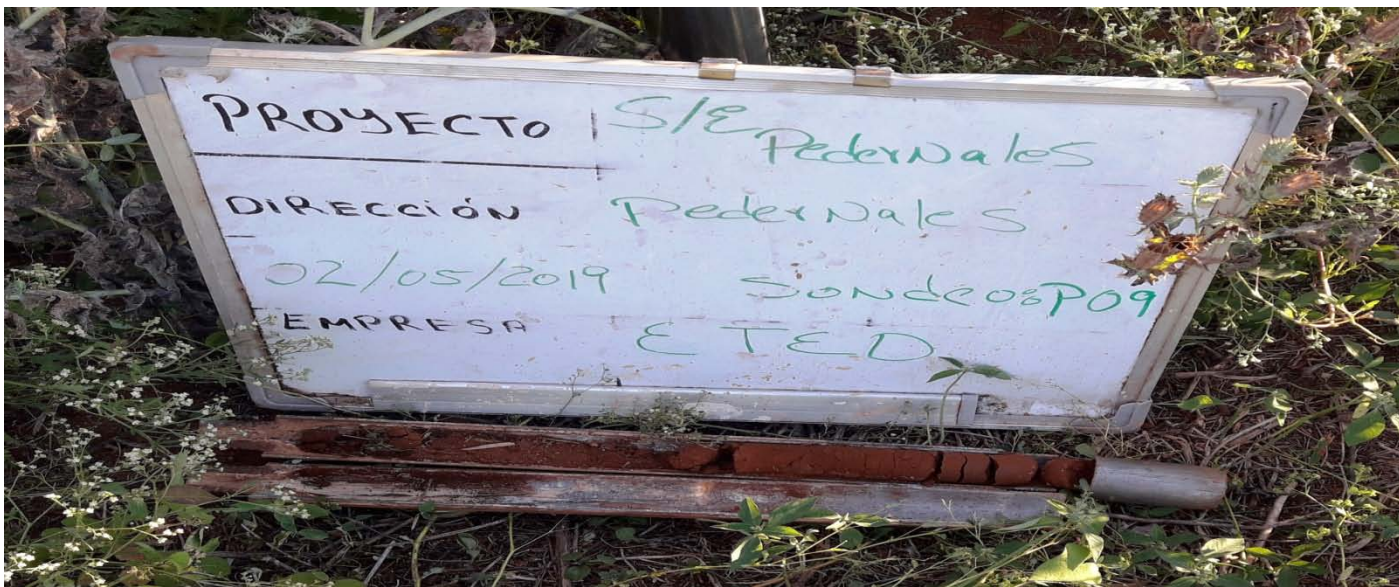 PROYECTO S/E Pedernales
DIRECCIÓN Pedernales
02/05/2019 Sondeo: P09
EMPRESA ETED